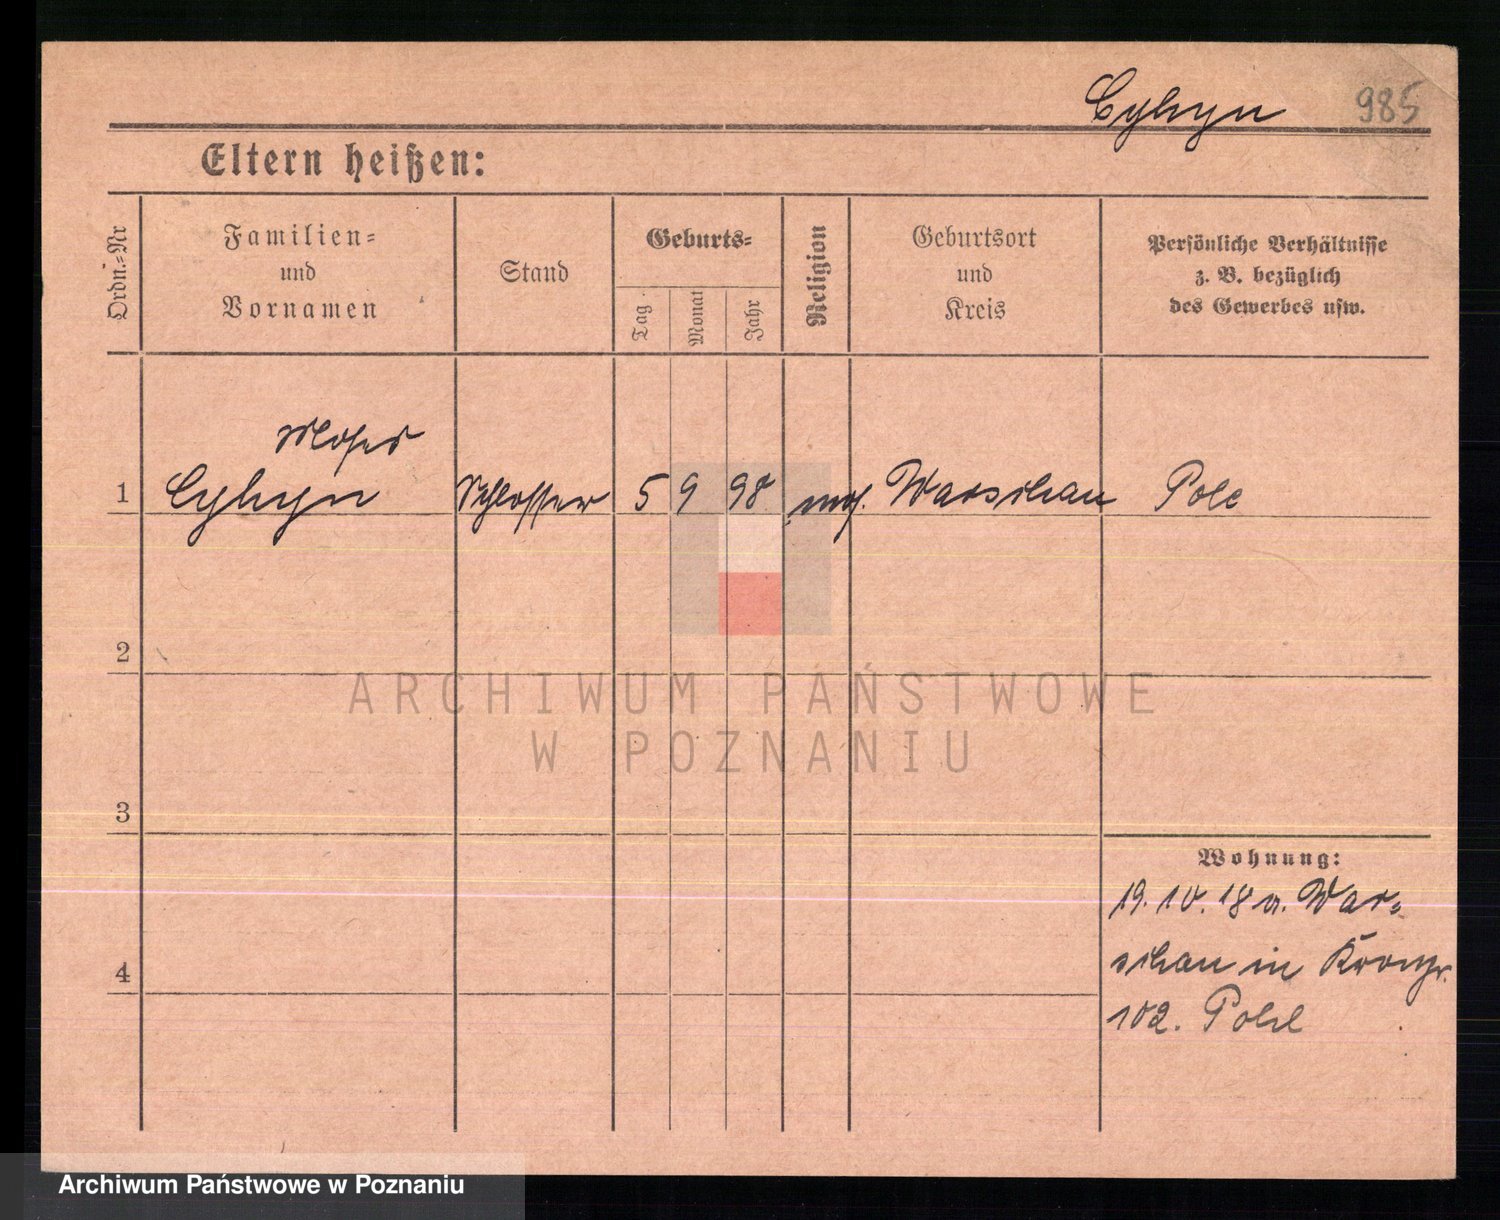 Cyhyn 985
Eltern heißen:
Ordn.=Nr
Familien=
und
Vornamen
Stand
Geburts=
Tag
Monat
Jahr
Religion
Geburtsort
und
Kreis
Persönliche Verhältnisse
z. B. bezüglich
des Gewerbes usw.
Moses
1 Cyhyn Schlosser 5 9 98 mos. Warschau Pole
2
3
4
Wohnung:
19. 10. 18 a. War=
schau in
102.
ARCHIWUM PAŃSTWOWE
W POZNANIU
Archiwum Państwowe w Poznaniu